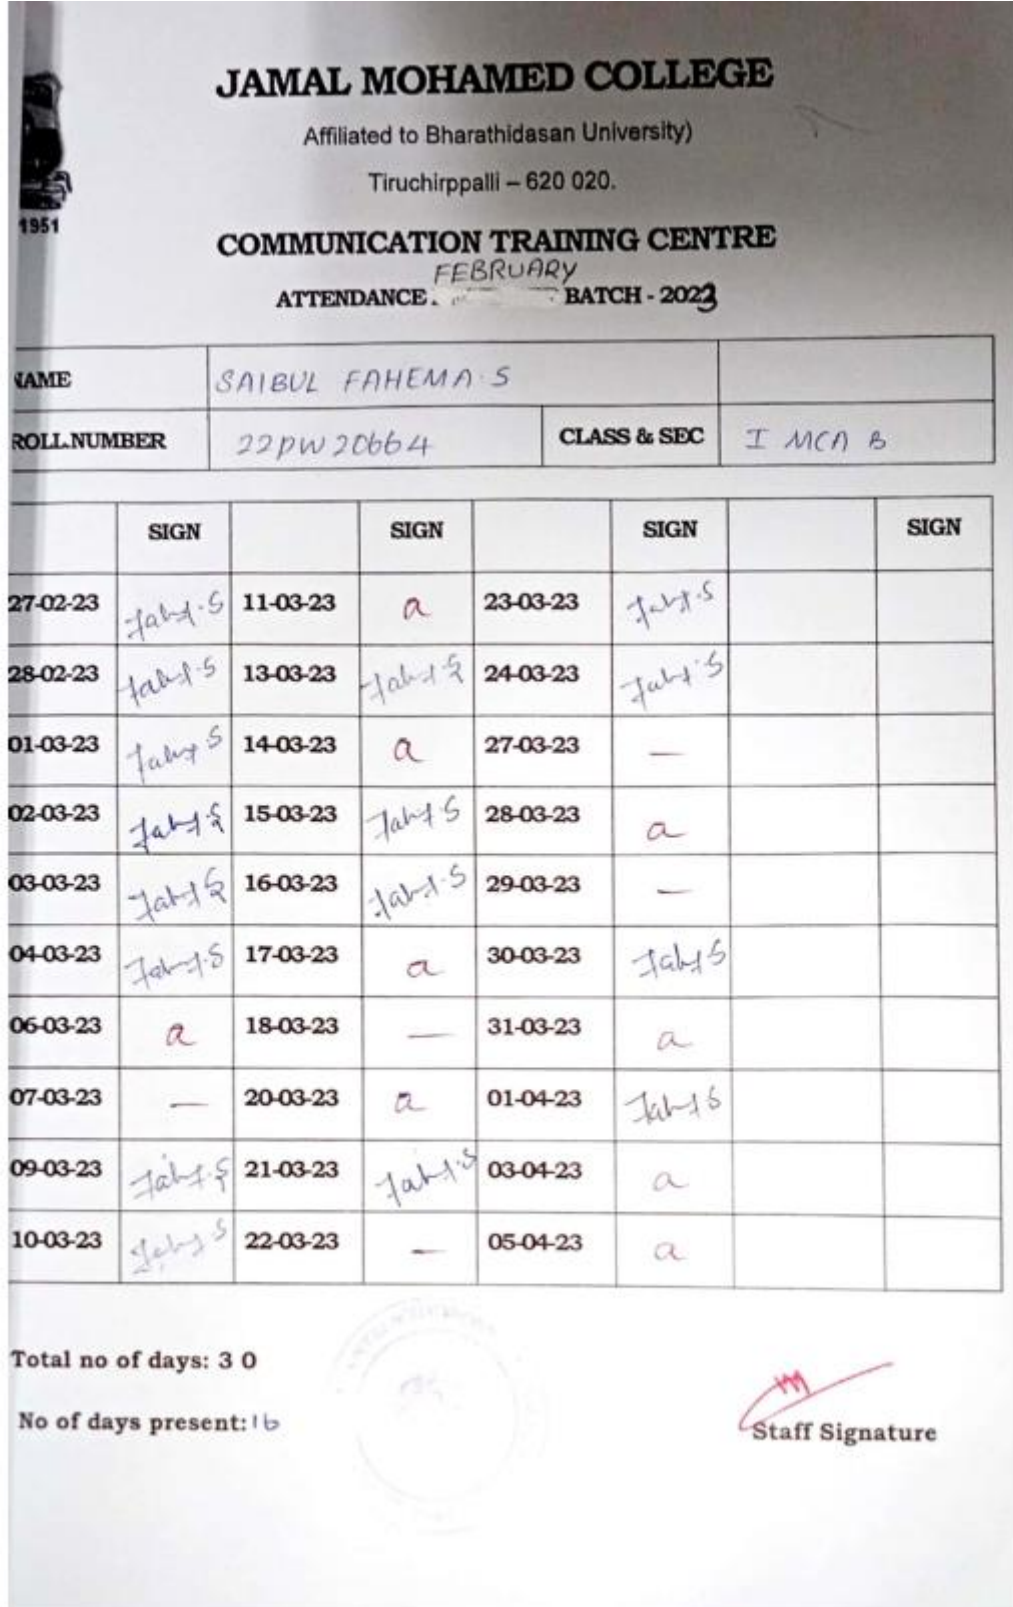 JAMAL MOHAMED COLLEGE
Affiliated to Bharathidasan University)
Tiruchirppalli – 620 020.
1951
COMMUNICATION TRAINING CENTRE
FEBRUARY
ATTENDANCE BATCH - 2023
NAME SAIBUL FAHEMA.S
ROLL.NUMBER 22PW20664 CLASS & SEC I MCA B
SIGN SIGN SIGN SIGN
27-02-23 11-03-23 a 23-03-23
28-02-23 13-03-23 24-03-23
01-03-23 14-03-23 a 27-03-23 —
02-03-23 15-03-23 28-03-23 a
03-03-23 16-03-23 29-03-23 —
04-03-23 17-03-23 a 30-03-23
06-03-23 a 18-03-23 — 31-03-23 a
07-03-23 — 20-03-23 a 01-04-23
09-03-23 21-03-23 03-04-23 a
10-03-23 22-03-23 — 05-04-23 a
Total no of days: 3 0
No of days present: 16
Staff Signature